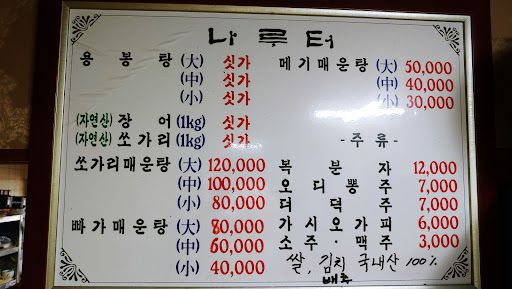 나루터
용봉탕 (大) 싯가
(中) 싯가
(小) 싯가
(자연산) 장어 (1kg) 싯가
(자연산) 쏘가리 (1kg) 싯가
쏘가리매운탕 (大) 120,000
(中) 100,000
(小) 80,000
빠가매운탕 (大) 80,000
(中) 60,000
(小) 40,000
메기매운탕 (大) 50,000
(中) 40,000
(小) 30,000
- 주류 -
복분자 12,000
오디뽕주 7,000
더덕주 7,000
가시오가피 6,000
소주·맥주 3,000
쌀, 김치 국내산 100%
배추